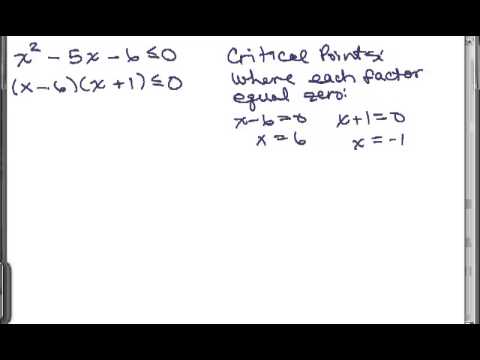 x² - 5x - 6 ≤ 0
(x - 6)(x + 1) ≤ 0
Critical Points:
where each factor
equal zero:
x - 6 = 0  x + 1 = 0
x = 6  x = -1